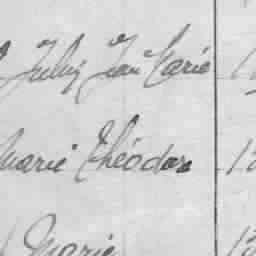 Jules Jean Marie
Marie Théodore 1
Marie 1